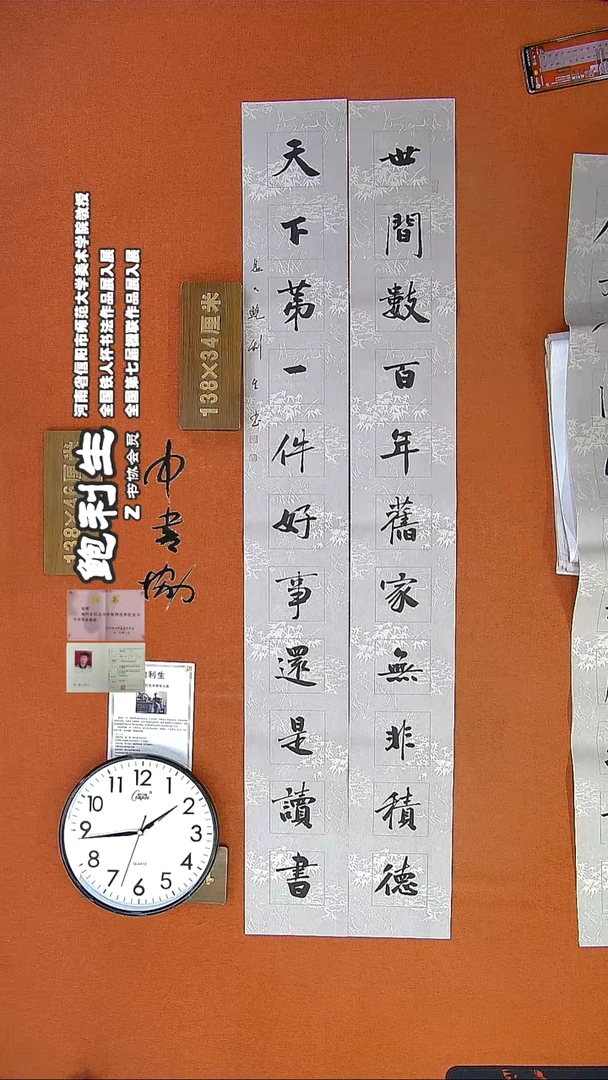 世間數百年舊家無非積德
天下第一件好事還是讀書
鮑利生書
138×34厘米
138×46厘米
河南省信阳市师范大学美术学院教授
全国铁人杯书法作品展入展
全国第七届楹联作品展入展
鲍利生
书协会员
中书协
利生
12
1
2
3
4
5
6
7
8
9
10
11
QUARTZ